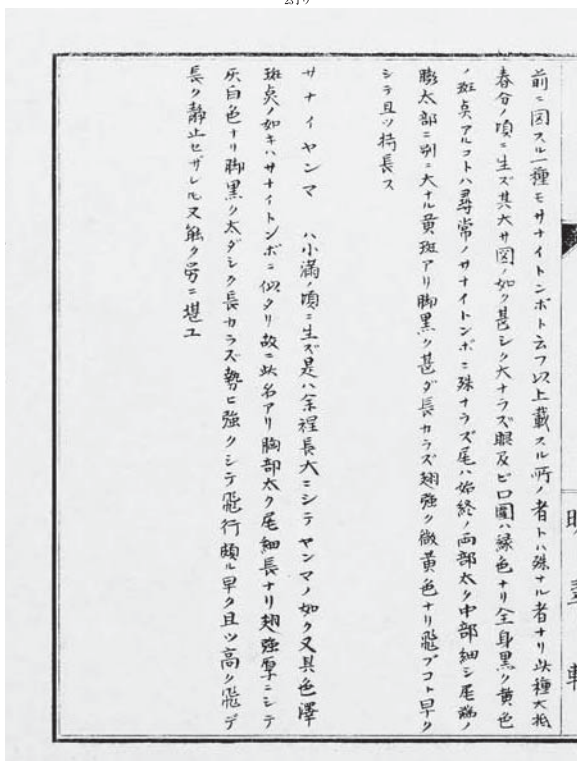 前ニ図スル一種モサナイトンボト云フ以上載スル所ノ者トハ殊ナル者ナリ此種大抵
春分ノ頃ニ生ズ其大サ図ノ如ク甚シク大ナラズ眼及ビ口囲ハ緑色ナリ全身黒ク黄色
ノ斑点アルコトハ尋常ノサナイトンボニ殊ナラズ尾ハ始終ノ両部太ク中部細シ尾端ノ
膨太部ニ別ニ大ナル黄斑アリ脚黒ク甚ダ長カラズ翅強ク微黄色ナリ飛ブコト早ク
シテ且ツ持長ス
サナイヤンマ ハ小満ノ頃ニ生ズ是ハ余程長大ニシテヤンマノ如ク又其色澤
斑点ノ如キハサナイトンボニ似タリ故ニ此名アリ胸部太ク尾細長ナリ翅強厚ニシテ
灰白色ナリ脚黒ク太ダシク長カラズ勢ヒ強クシテ飛行頗ル早ク且ツ高ク飛デ
長ク静止セザレ𪜈又能ク労ニ堪ユ